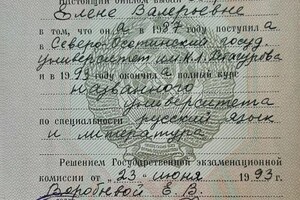 Настоящий диплом выдан
Елене Валерьевне
в том, что она в 1987 году поступила
в Северо-Осетинский госуд.
университет им. К.Л. Хетагурова
и в 1993 году окончила полный курс
названного
университета
по специальности русский язык
и литература
Решением Государственной экзаменационной
комиссии от "23" июня 1993 г.
Воробьевой Е.В.